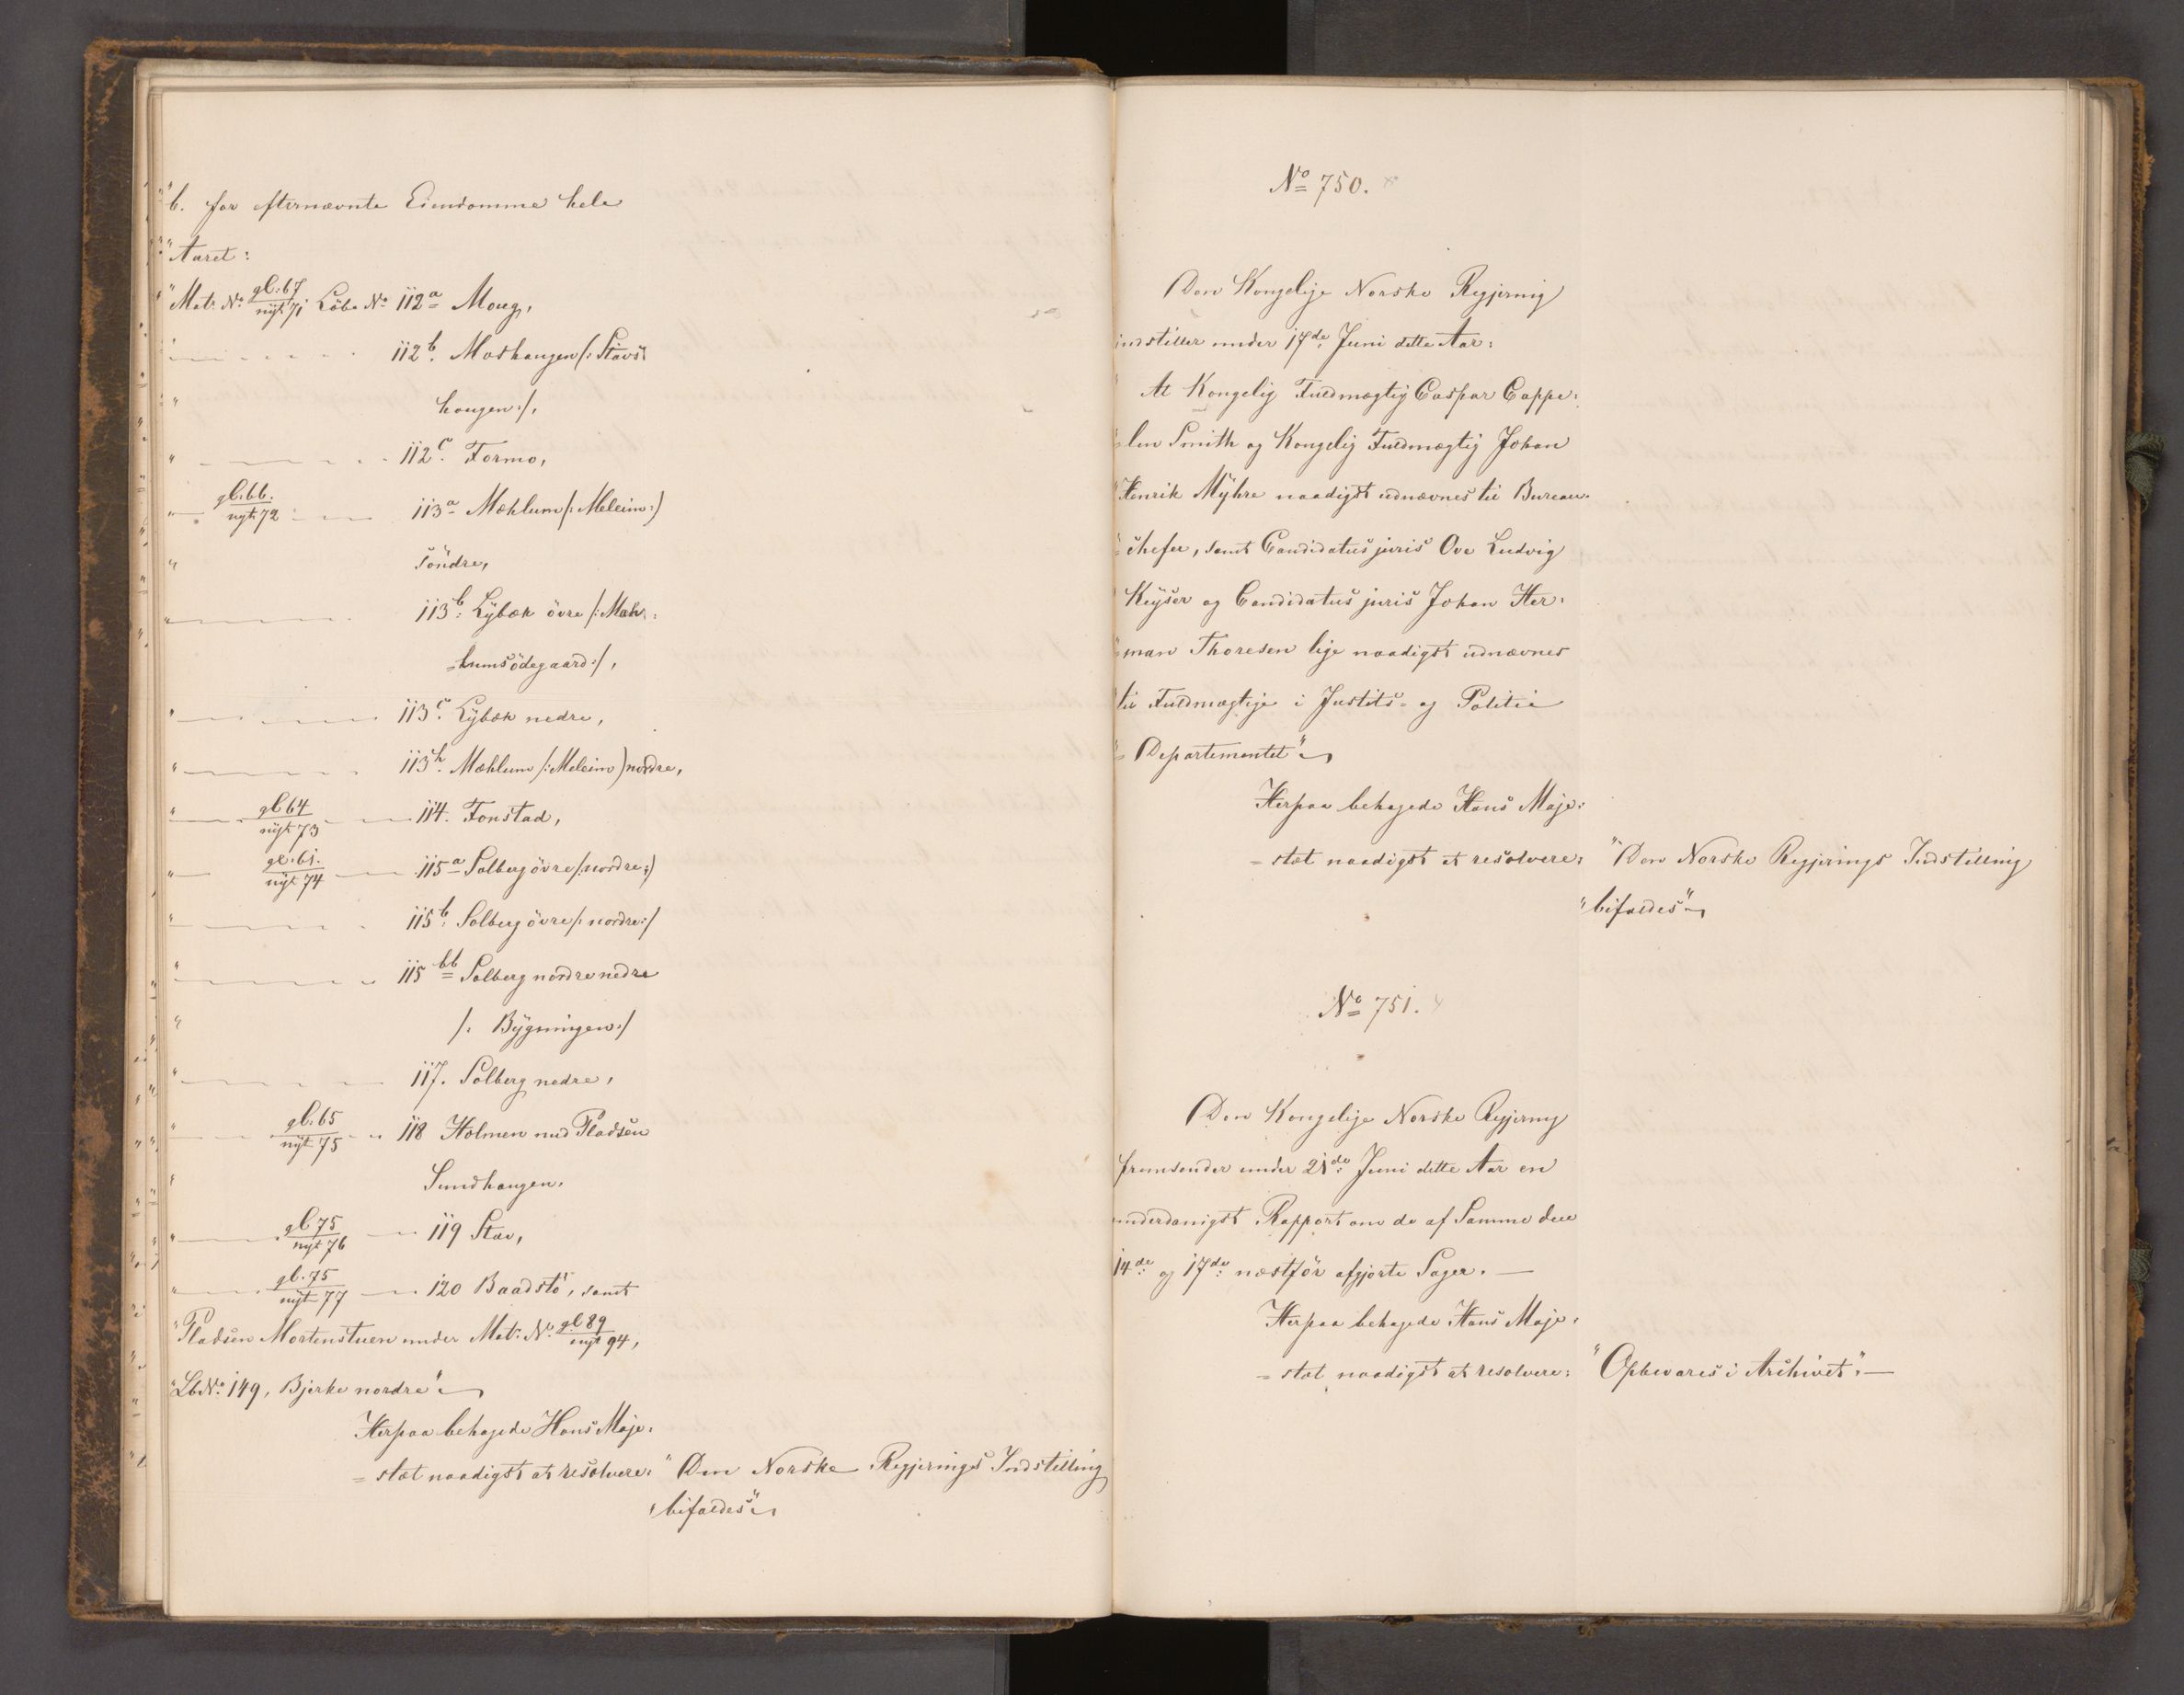 "b. for efternævnte Eiendomme hele
"Aaret:
"Matr. No. gl. 67/nyt 71 Löbe No 112a Moug,
" 112b. Moshaugen /: Stavs-
" haugen :/,
" 112c. Formo,
" gl. 66./nyt 72 113a Mæhlum /: Meleim :)
" söndre,
" 113b: Lybæk övre /: Mæh-
=lumsödegaard :/,
" 113c. Lybæk nedre,
" 113h. Mæhlum /: Meleim ) nordre,
" gl 64/nyt 73 114. Fonstad,
" gl. 61./nyt 74 115a Solberg övre /: nordre :)
" 115b. Solberg övre /: nordre :/
" 115bb Solberg nordre nedre
" /: Bygningen :/
" 117. Solberg nedre,
" gl. 65/nyt 75 118 Holmen med Pladsen
" Sundhaugen.
" gl 75/nyt 76 119 Stav,
" gl. 75/nyt 77 120 Baadstö, samt
"Pladsen Mortenstuen under Matr: No. gl 89/nyt 94,
"Lb No. 149, Bjerke nordre"
Herpaa behagede Hans Maje-
=stæt naadigst at resolvere: "Den Norske Regjerings Indstilling
"bifaldes"
No 750.
Den Kongelige Norske Regjering
indstiller under 17de Juni dette Aar:
"At Kongelig Fuldmægtig Caspar Cappe-
"len Smith og Kongelig Fuldmægtig Johan
"Henrik Myhre naadigst udnævnes til Bureau-
"chefer, samt Candidatus juris Ove Ludvig
"Keyser og Candidatus juris Johan Her-
"man Thoresen lige naadigst udnævnes
"til Fuldmægtige i Justits- og Politie
"Departementet"
Herpaa behagede Hans Maje-
=stæt naadigst at resolvere: "Den Norske Regjerings Indstilling
"bifaldes"
No 751.
Den Kongelige Norske Regjering
fremsender under 21de Juni dette Aar en
underdanigst Rapport om de af Samme den
14de og 17de næstför afgjorte Sager. —
Herpaa behagede Hans Maje-
=stæt naadigst at resolvere: "Opbevares i Archivet". —